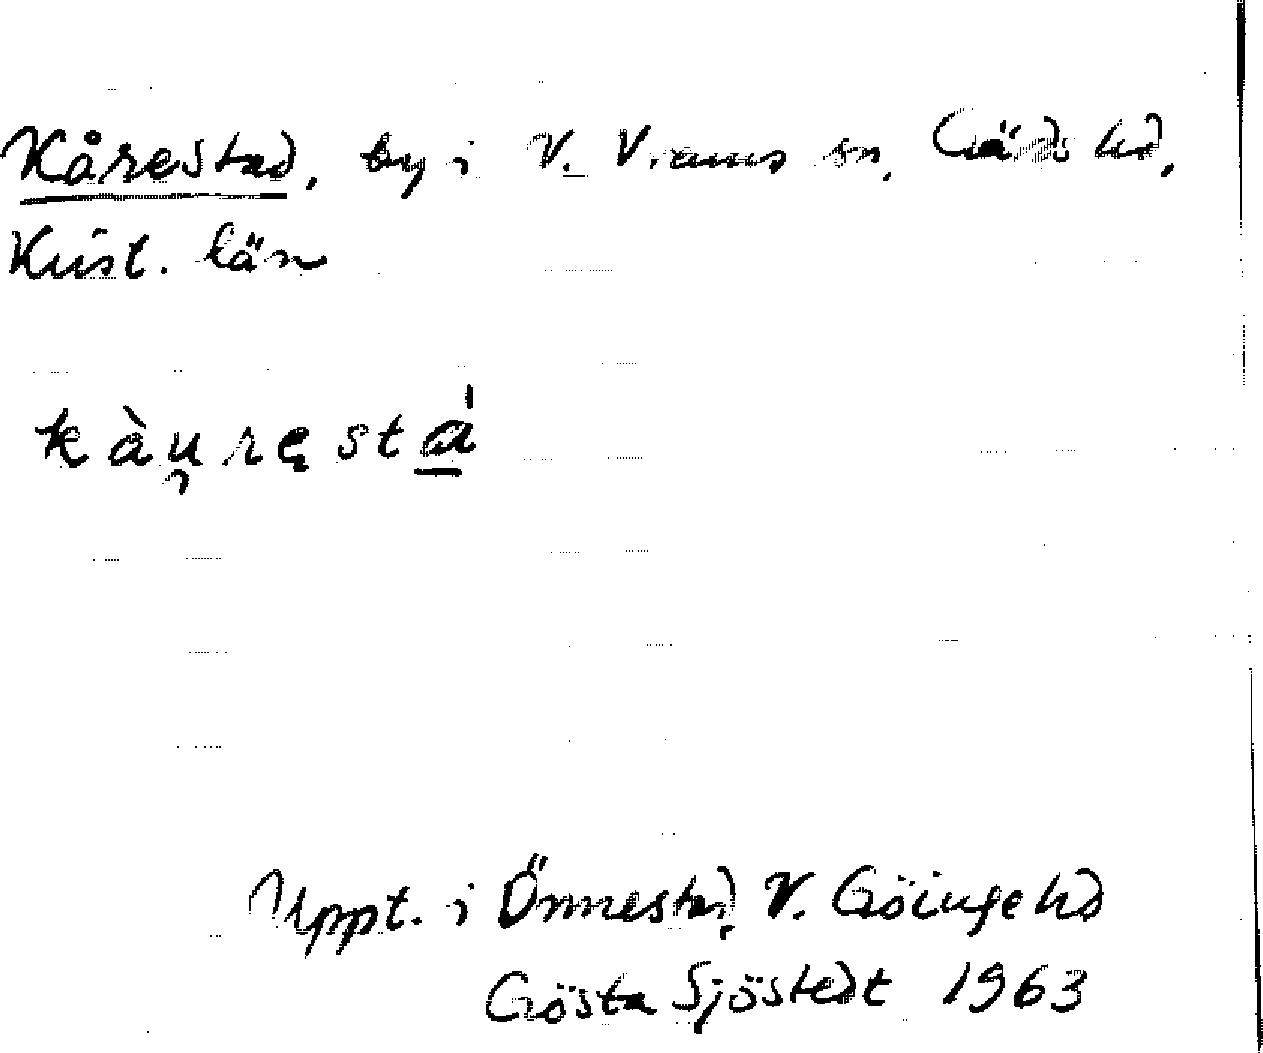 Kårestad, by i V. Vrams sn, Gärds hd,
Krist. län
kàu̯ręstá̱
Uppt. i Önnestad, V. Göinge hd
Gösta Sjöstedt 1963